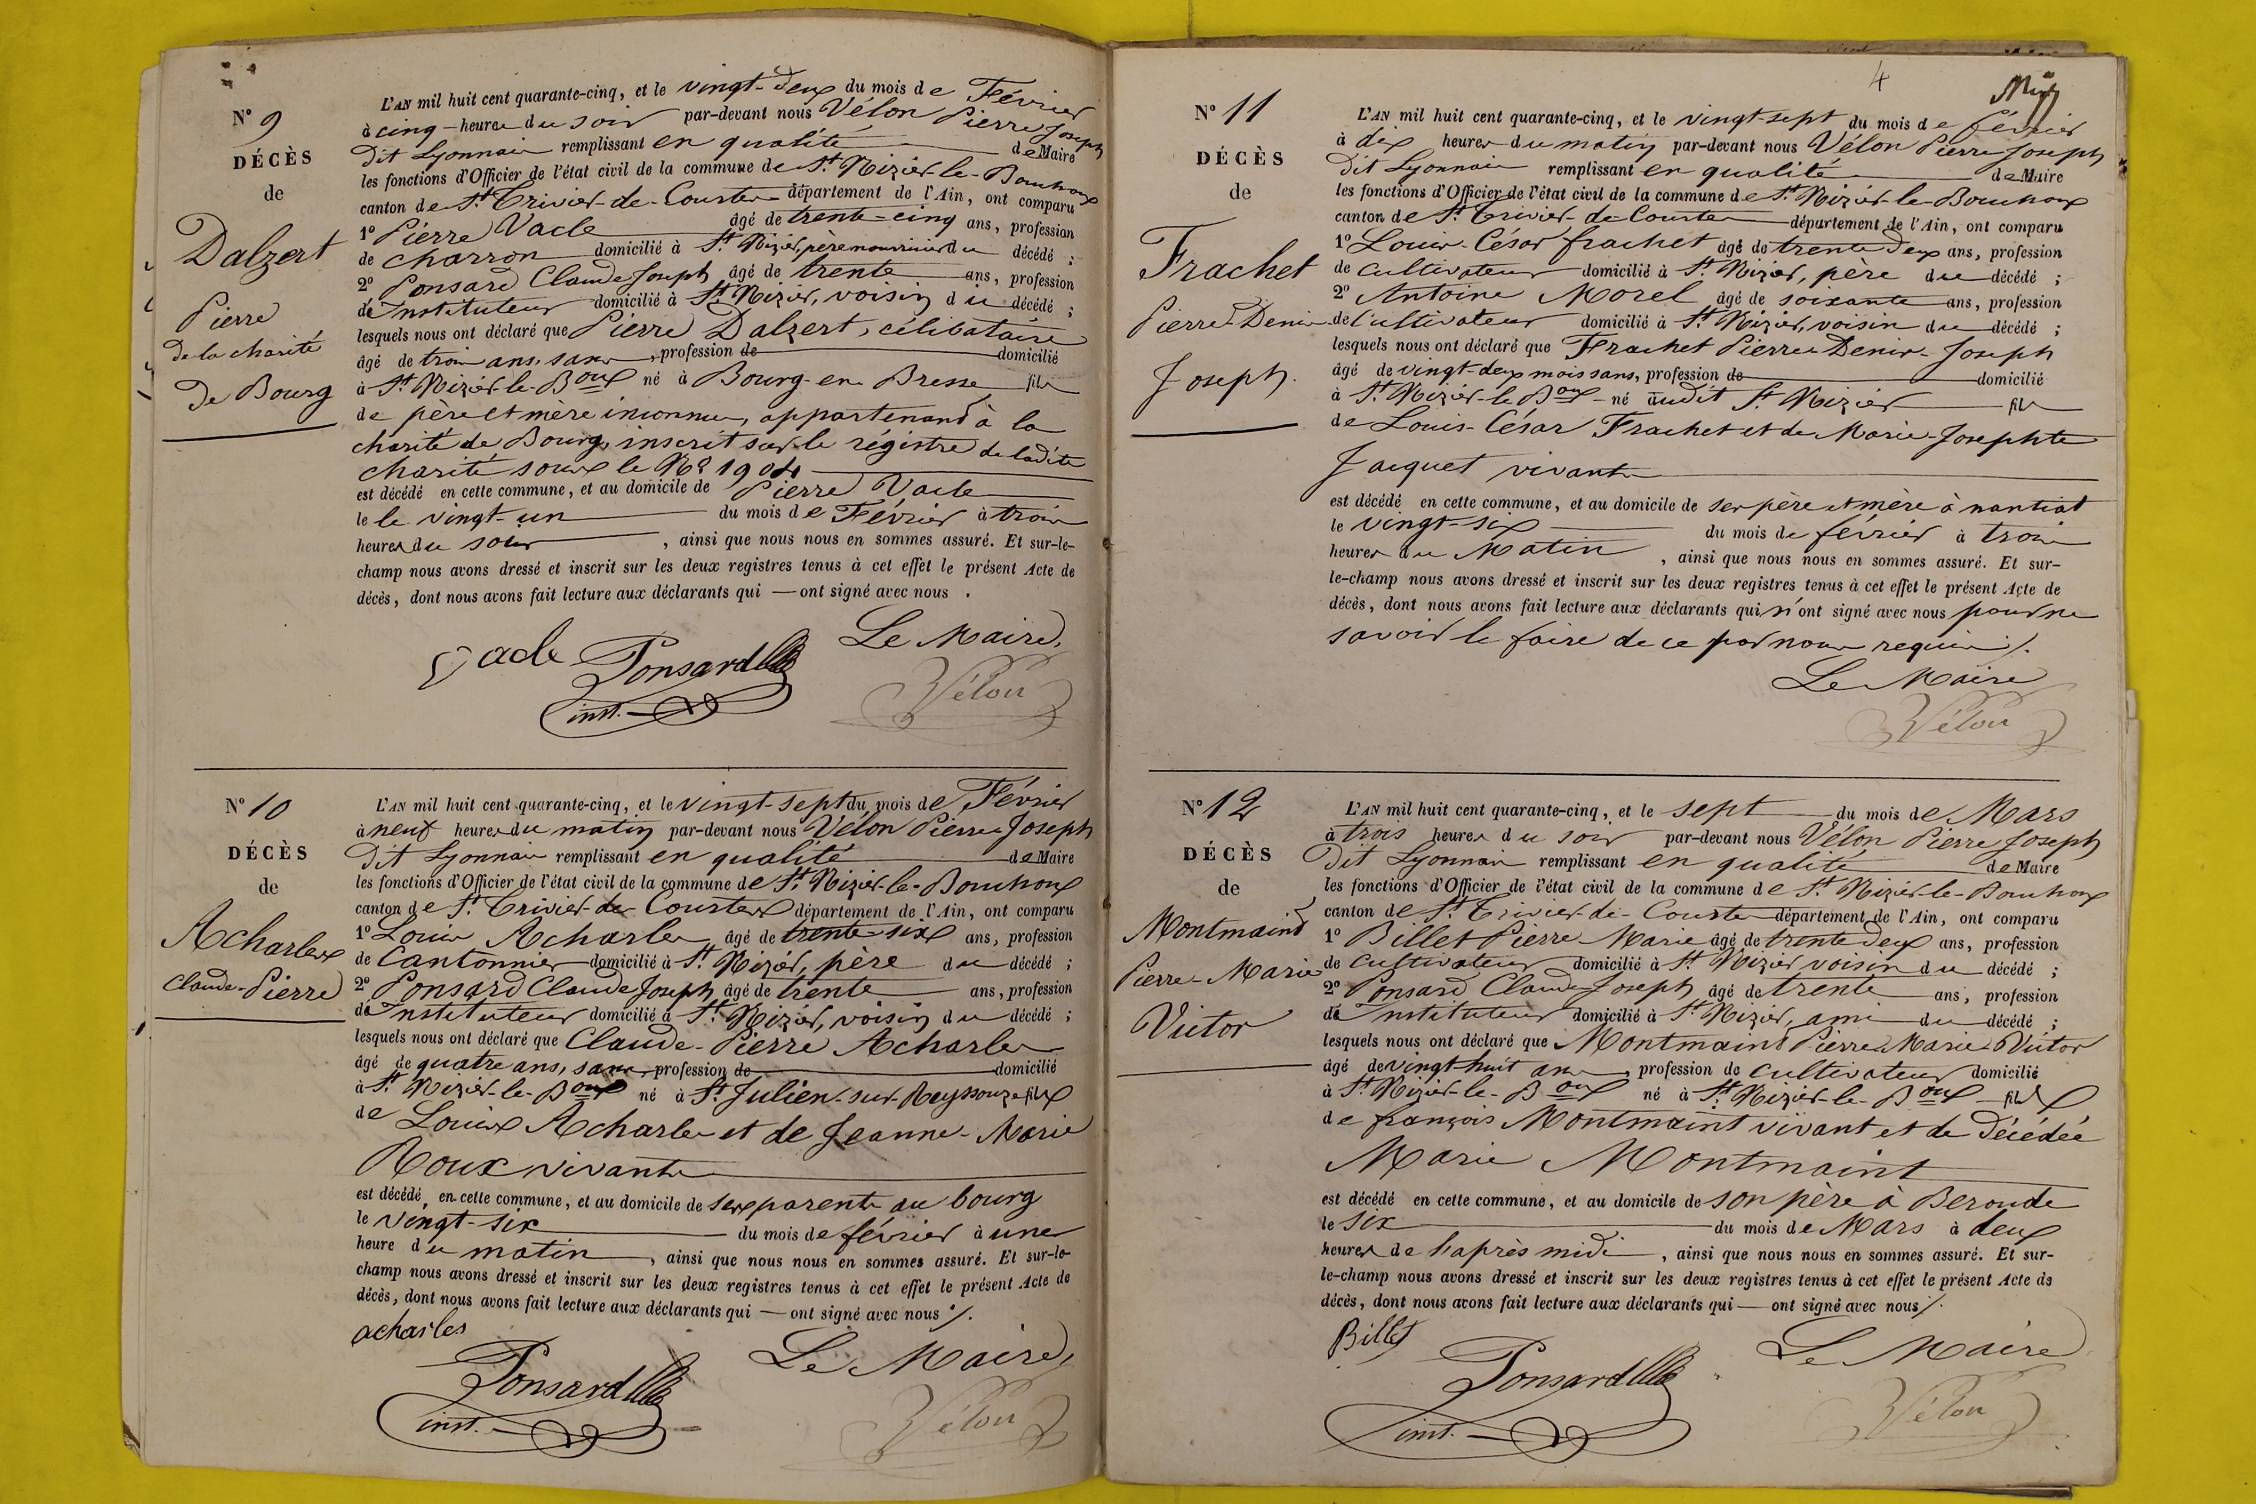 N° 9
DÉCÈS
de
Dalzert
Pierre
De la charité
De Bourg
L'AN mil huit cent quarante-cinq, et le vingt-deux du mois de Février
à cinq heures du soir par-devant nous Vélon Pierre Joseph
Dit Lyonnais remplissant en qualité de Maire
les fonctions d'Officier de l'état civil de la commune de St Nizier-le-Bouchoux
canton de St Trivier-de-Courtes département de l'Ain, ont comparu
1° Pierre Vacle âgé de trente-cinq ans, profession
de charron domicilié à St Nizier, père nourricier du décédé ;
2° Ponsard Claude Joseph âgé de trente ans, profession
de Instituteur domicilié à St Nizier, voisin du décédé ;
lesquels nous ont déclaré que Pierre Dalzert, célibataire
âgé de trois ans, sans, profession de domicilié
à St Nizier-le-Boux né à Bourg-en-Bresse fils
de père et mère inconnus, appartenant à la
charité de Bourg, inscrit sur le régistre de ladite
charité sous le N° 1904
est décédé en cette commune, et au domicile de Pierre Vacle
le le vingt-un du mois de Février à trois
heures du soir, ainsi que nous nous en sommes assuré. Et sur-le-
champ nous avons dressé et inscrit sur les deux registres tenus à cet effet le présent Acte de
décès, dont nous avons fait lecture aux déclarants qui — ont signé avec nous .
Vacle Ponsard Le Maire,
inst. Vélon
N° 10
DÉCÈS
de
Acharles
Claude-Pierre
L'AN mil huit cent quarante-cinq, et le vingt-sept du mois de Février
à neuf heures du matin par-devant nous Vélon Pierre Joseph
Dit Lyonnais remplissant en qualité de Maire
les fonctions d'Officier de l'état civil de la commune de St Nizier-le-Bouchoux
canton de St Trivier-de-Courtes département de l'Ain, ont comparu
1° Louis Acharles âgé de trente-six ans, profession
de Cantonnier domicilié à St Nizier, père du décédé ;
2° Ponsard Claude Joseph âgé de trente ans, profession
de Instituteur domicilié à St Nizier, voisin du décédé ;
lesquels nous ont déclaré que Claude-Pierre Acharles
âgé de quatre ans, sans, profession de domicilié
à St Nizier-le-Boux né à St Julien-sur-Reyssouze fils
de Louis Acharles et de Jeanne-Marie
Roux vivants
est décédé en cette commune, et au domicile de ses parents au bourg
le vingt-six du mois de février à une
heure du matin, ainsi que nous nous en sommes assuré. Et sur-le-
champ nous avons dressé et inscrit sur les deux registres tenus à cet effet le présent Acte de
décès, dont nous avons fait lecture aux déclarants qui — ont signé avec nous ./.
acharles
Ponsard Le Maire,
inst. Vélon
4
N° 11
DÉCÈS
de
Frachet
Pierre-Denis
Joseph.
L'AN mil huit cent quarante-cinq, et le vingt-sept du mois de février
à dix heures du matin par-devant nous Vélon Pierre Joseph
Dit Lyonnais remplissant en qualité de Maire
les fonctions d'Officier de l'état civil de la commune de St Nizier-le-Bouchoux
canton de St Trivier-de-Courtes département de l'Ain, ont comparu
1° Louis-César frachet âgé de trente deux ans, profession
de cultivateur domicilié à St Nizier, père du décédé ;
2° Antoine Morel âgé de soixante ans, profession
de Cultivateur domicilié à St Nizier, voisin du décédé ;
lesquels nous ont déclaré que Frachet Pierre Denis-Joseph
âgé de vingt-deux mois sans, profession de domicilié
à St Nizier-le-Boux né audit St Nizier fils
de Louis-César Frachet et de Marie-Josephte
Jacquet vivants
est décédé en cette commune, et au domicile de ses père et mère à nantiat
le vingt-six du mois de février à trois
heures du Matin, ainsi que nous nous en sommes assuré. Et sur-
le-champ nous avons dressé et inscrit sur les deux registres tenus à cet effet le présent Acte de
décès, dont nous avons fait lecture aux déclarants qui n'ont signé avec nous pour ne
savoir le faire de ce par nous requis ./.
Le Maire
Vélon
N° 12
DÉCÈS
de
Montmaint
Pierre-Marie
Victor
L'AN mil huit cent quarante-cinq, et le sept du mois de Mars
à trois heures du soir par-devant nous Vélon Pierre Joseph
Dit Lyonnais remplissant en qualité de Maire
les fonctions d'Officier de l'état civil de la commune de St Nizier-le-Bouchoux
canton de St Trivier-de-Courtes département de l'Ain, ont comparu
1° Billet Pierre Marie âgé de trente deux ans, profession
de cultivateur domicilié à St Nizier voisin du décédé ;
2° Ponsard Claude Joseph âgé de trente ans, profession
de Instituteur domicilié à St Nizier, ami du décédé ;
lesquels nous ont déclaré que Montmaint Pierre Marie Victor
âgé de vingt huit ans, profession de cultivateur domicilié
à St Nizier-le-Boux né à St Nizier-le-Boux fils
de françois Montmaint vivant et de Décédée
Marie Montmaint
est décédé en cette commune, et au domicile de son père à Beroude
le six du mois de Mars à deux
heures de l'après midi, ainsi que nous nous en sommes assuré. Et sur-
le-champ nous avons dressé et inscrit sur les deux registres tenus à cet effet le présent Acte de
décès, dont nous avons fait lecture aux déclarants qui — ont signé avec nous ./.
Billet Le Maire
Ponsard
inst. Vélon